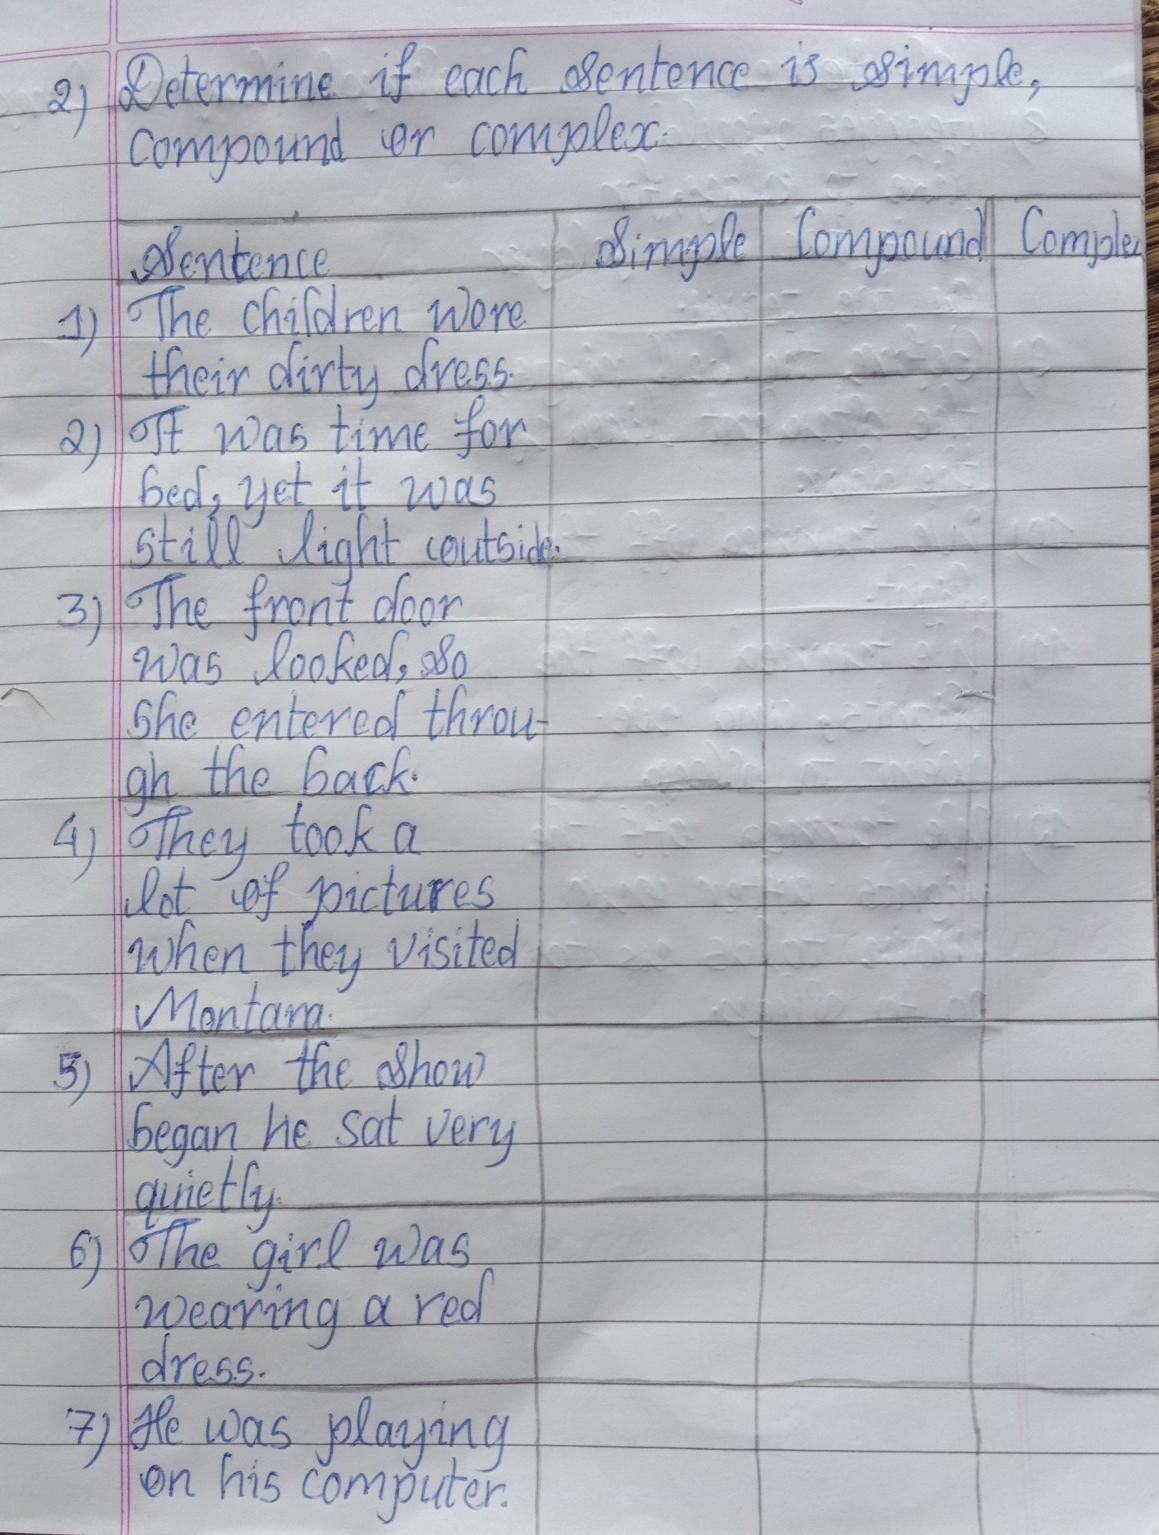 2) Determine if each sentence is simple,
compound or complex.
Sentence Simple Compound Complex
1) The children wore
their dirty dress.
2) It was time for
bed, yet it was
still light outside.
3) The front door
was looked, so
she entered throu-
gh the back.
4) They took a
lot of pictures
when they visited
Montana.
5) After the show
began he sat very
quietly.
6) The girl was
wearing a red
dress.
7) He was playing
on his computer.